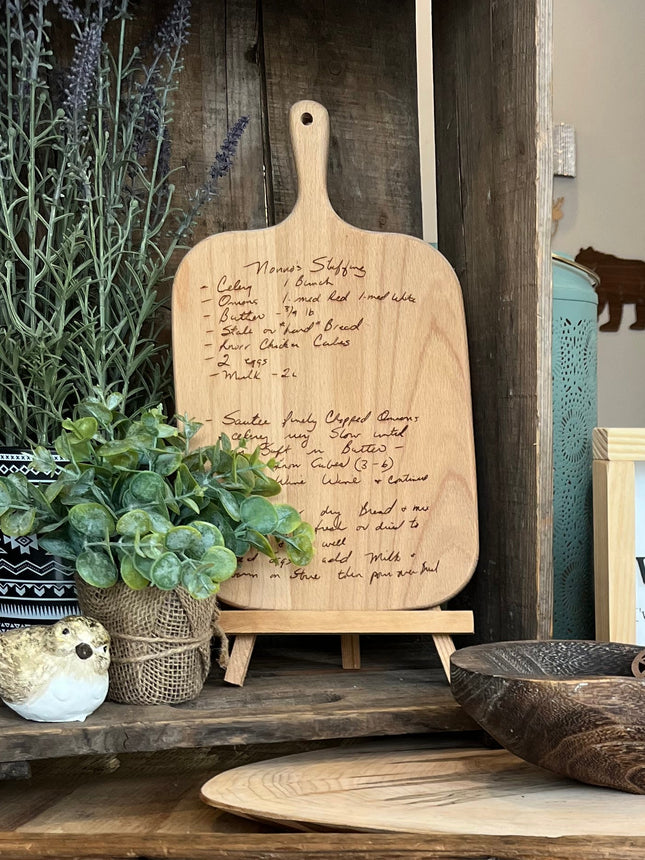 Nonno's Stuffing
- Celery 1 Bunch
- Onions 1-med Red 1-med White
- Butter - 3/4 lb
- Stale or "hard" Bread
- Knorr Chicken Cubes
- 2 eggs
- Milk - 2c
- Sautee finely Chopped Onions
celery very Slow until
Soft in Butter -
Cubes (3-6)
Wine + continue
dry Bread + mix
or dried to
well
add Milk +
on Stove then pour over Bread